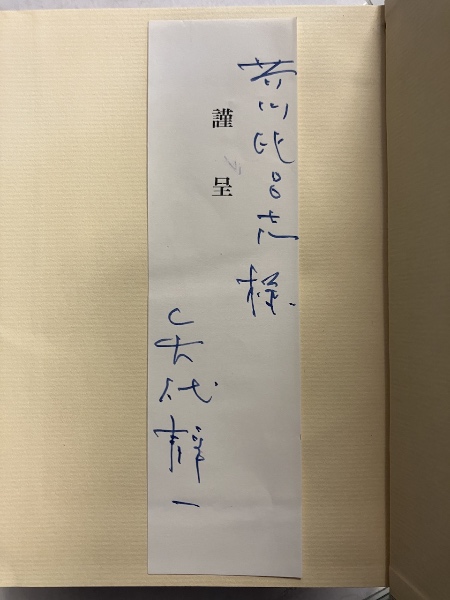 芥川比呂志 様
謹呈
矢代静一